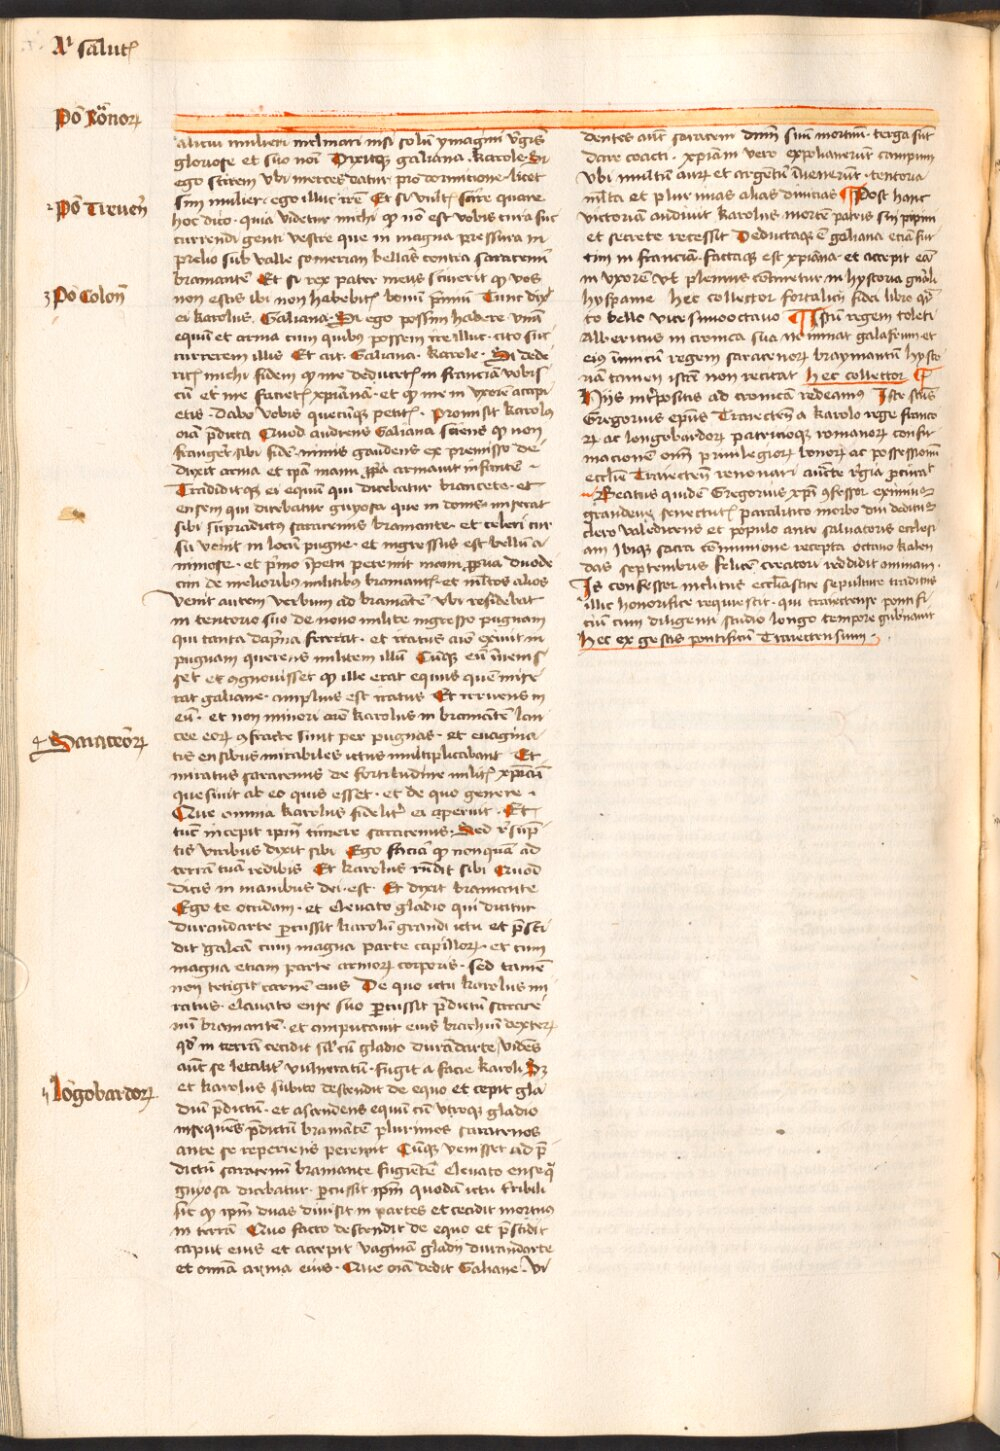 Aº salutꝭ
Põ Rõnorꝝ
2 Põ Treveñ
3 Põ Coloñ
4 Saraceõrꝝ
5 lõgobardorꝝ
alicui mulieri inclinari nisi solũ ymagini ṽgĩs
gloriose et suo noĩ Dixitqꝫ galiana. karole. Si
ego scirem vbi merces datur pro dormicione licet
sim mulier. ego illuc irẽ Et si vultꝭ scire quare
hoc dico. quia videtur michi ꝙ nõ est vobis cura suc
currendi genti vestre que in magna pressura in
prelio sub valle somorian bellãs contra saracenũ
bramantẽ Et si rex pater meus sciverit ꝙ vos
non estis ibi non habebitꝭ bonũ p̃miũ Tunc dix̃
ei karolus. Galiana. Si ego possem habere vnũ
equũ et arma cum quibus possem ire illuc. cito suc
currerem illis Et ait. Galiana. karole. Si dede
ritꝭ michi fidem ꝙ me deducetꝭ in franciã vobis
cũ et me facietꝭ xp̃ianã. et ꝙ me in vxorẽ accipi
etis. dabo vobis quecũqꝫ petitꝭ. Promisit karolꝰ
oĩa p̃dicta Quod audiens Galiana sciens ꝙ non
franget sibi fidẽ. nimis gaudens ex premisso de
duxit arma et ip̃a manu ꝓpa armavit infantẽ.
Tradiditqꝫ ei equũ qui dicebatur branceta. et
ensem qui dicebatur guyosa que in domo. miserat
sibi supradictus saracenus bramante. et celeri cur
su venit in locũ pugne. et ingressus est bellũ a
nimose. et p̃mo ĩpetu peremit manu ꝓpria duode
cim de melioribꝰ militibus bramantꝭ. et mĩtos alios
Venit autem verbum ad bramãtẽ vbi residebat
in tentorio suo de novo milite ingresso pugnam
qui tanta dãpna fecerat. et iratus cũ exiuit in
pugnam querens militem illũ Cũqꝫ eũ ĩuenis
set et ꝯgnouisset ꝙ ille erat equus quẽ mise
rat galiane. amplius est iratus Et irruens in
eũ. et non minori cũ karolus in bramãtẽ lan
cee eorꝝ ꝯfracte sunt per pugnas. et euagina
tis ensibus mirabiles ictus multiplicabant Et
miratus saracenus de fortitudine militꝭ xp̃iani
quesiuit ab eo quis esset. et de quo genere.
Que omnia karolus fidelitꝭ ei aperuit. Et
tũc incepit ip̃m timere saracenus. Sed r̃sũp
tis viribus dixit sibi Ego faciã ꝙ nonquã ad
terrã tuã redibis Et karolus rñdit sibi Quod
dicis in manibus dei. est. Et dixit bramante
Ego te occidam. et eleuato gladio qui dicitur
durandarte ꝑcussit karolũ grandi ictu et p̃sci
dit galeã cum magna parte capillorꝝ. et cum
magna etiam parte armorꝝ corporis. sed tamẽ
non tetigit carnẽ eius De quo ictu karolus mi
ratus. eleuato ense suo ꝑcussit p̃dictũ sarace
nũ bramantẽ. et amputauit eius brachiũ dexterꝝ
qd̃ in terrã cecidit sil̃ cũ gladio durãdarte, videns
aũt se letalitꝭ vulneratũ. fugit a facie karoli Sꝫ
et karolus subito descendit de equo et cepit gla
diũ p̃dictũ. et ascendens equũ cũ vtroqꝫ gladio
insequẽs p̃dictũ bramãtẽ plurimos saracenos
ante se reperiens peremit Cũqꝫ venisset ad p̃
dictũ saracenũ bramante fugiẽtẽ eleuato ense q̃
guyosa dicebatur. ꝑcussit ip̃m quodã ictu tribili
sic ꝙ ip̃m duas diuisit in partes et cecidit mortuꝰ
in terrã Quo facto descendit de equo et p̃scidit
caput eius et accepit vaginã gladij durandarte
et omnia arma eius. Que oĩa dedit Galiane. Vi
dentes aũt saraceni dñm suũ mortuũ. terga sũt
dare coacti. xp̃iani vero expoliauerũt campum
vbi multũ aurꝝ et argentũ ĩuenerũt. tentoria
mĩlta et plurimas alias diuicias ¶ Post hanc
victoriã audiuit karolus mortẽ patris sui pipini
et secrete recessit Deductaqꝫ ẽ galiana eciã fur
tim in franciam. factaqꝫ est xp̃iana. et accepit eã
in vxorẽ vt plenius cõtinetur in hystoria gñali
hyspanie hec collector fortalicij fidei libro qr̃
to bello vicesimooctauo ¶ Istũ regem toleti
Albericus in cronica sua nominat galafrum et
eiꝰ inimicũ regem saracenorꝝ braymantũ hysto
riã tamen istã non recitat hec collector ¶
Hijs int̃positis ad cronicã redeamus Iste sc̃us
Gregorius ep̃us Traiectẽn a Karolo rege franco
rꝝ ac longobardorꝝ patricioqꝫ romanorꝝ confir
macionẽ oĩm priuilegiorꝝ bonorꝝ ac possessionũ
ecclie Traiectẽn renouari aucte r̃gia ꝓcurat
Beatus quidẽ Gregorius xp̃i ꝯfessor eximius
grandeuꝰ senectutꝭ paralitico morbo diu detentꝰ
clero valedicens et populo ante saluatoris ecclesi
am Ibiqꝫ sacra cõmunione recepta octauo kalen
das septembris felicẽ creatori reddidit animam.
Is confessor inclitus ecclesiastice sepulture traditus
illic honorifice requiescit. qui traiectense pontifi
cium cum diligenti studio longo tempore gub̃nauit
hec ex gestis pontificũ Traiectensium